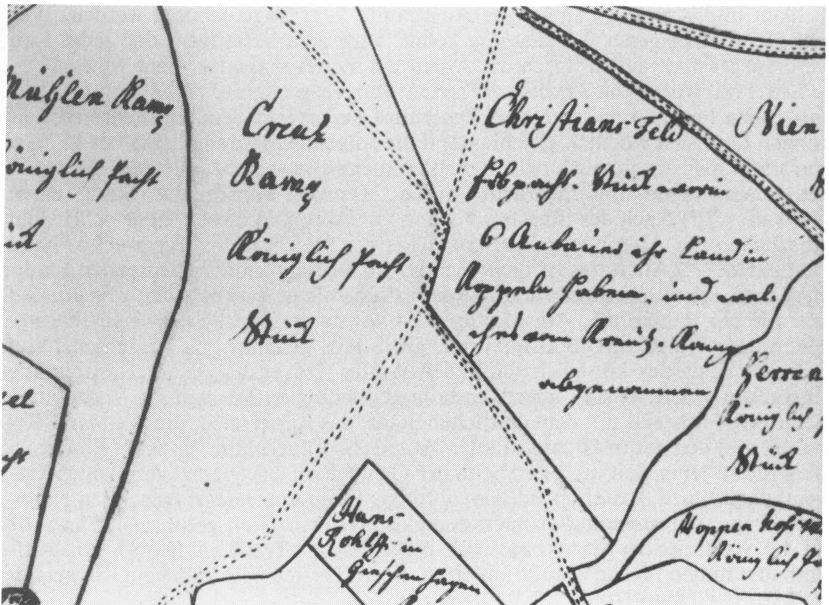 Mühlen Kamp
Königlich Pacht
Stück
Creutz
Kamp
Königlich Pacht
Stück
Christians Feld
Erbpacht-Stück worin
6 Anbauer ihr Land in
Koppeln haben, und wel-
ches vom Kreutz-Kamp
abgenommen
Nien
Königlich
Stück
Hans
Rohlfs in
Gieschen Hagen
Hoppen hofs
Königlich